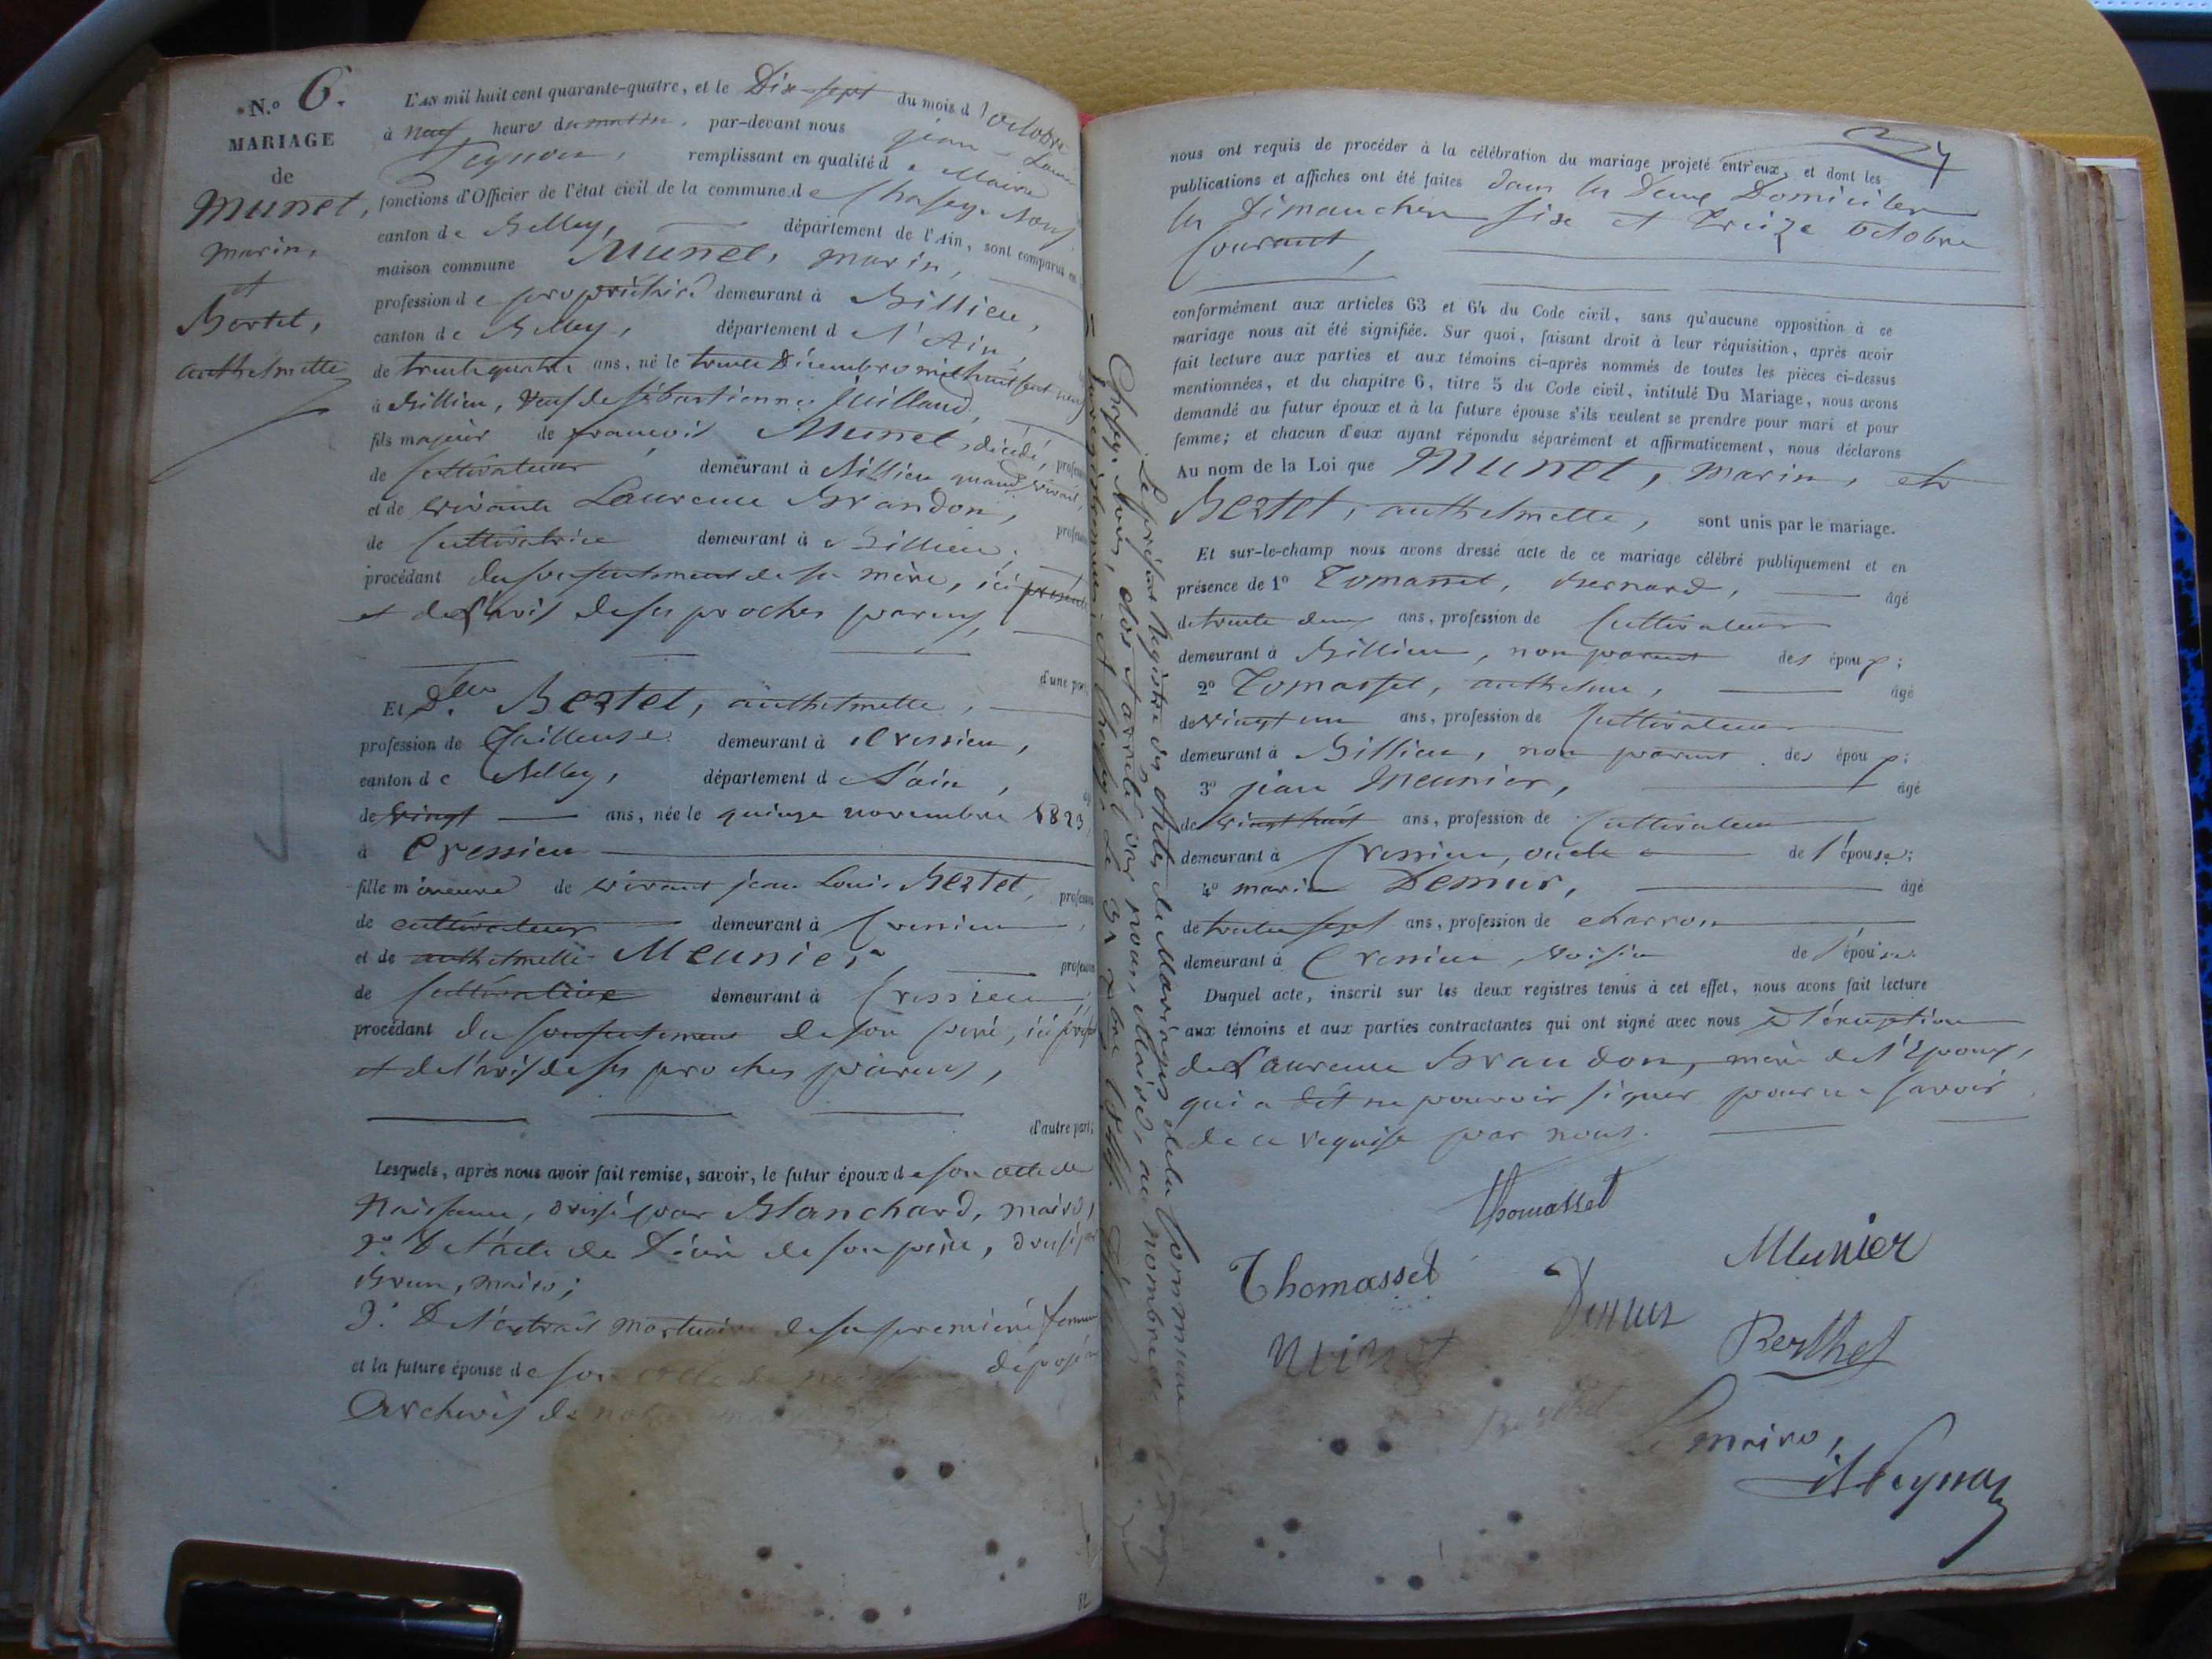 N.º 6.
MARIAGE
de
Munet,
marin,
et
Bertet,
anthelmette
L'AN mil huit cent quarante-quatre, et le Dix-sept du mois d'octobre
à neuf heures du matin, par-devant nous jean-
Peynou, remplissant en qualité de Maire
fonctions d'Officier de l'état civil de la commune de Chasey-Bons
canton de Belley, département de l'Ain, sont comparus en
maison commune Munet, marin,
profession de propriétaire demeurant à Billieu,
canton de Belley, département de l'Ain,
de trente quatre ans, né le trente Décembre mil huit cent neuf
à Billieu, veuf de sébastienne
fils majeur de francois Munet, décédé, profession
de Cultivateur demeurant à Billieu quand vivait,
et de vivante Laurence Brandon, profession
de Cultivatrice demeurant à Billieu,
procédant du consentement de sa mère, ici présente
et de l'avis de ses proches parens,
d'une part,
Et Dlle Bertet, anthelmette,
profession de Tailleuse demeurant à Cressieu,
canton de Belley, département de l'ain,
de vingt ans, née le quinze novembre 1823,
à Cressieu
fille mineure de vivant jean Louis Bertet, profession
de cultivateur demeurant à Cressieu,
et de anthelmette Meunier, profession
de Cultivatrice demeurant à Cressieu
procédant du consentement de son père, ici
et de l'avis de ses proches parens,
d'autre part;
Lesquels, après nous avoir fait remise, savoir, le futur époux de son acte de
Naissance, dressé par Blanchard, maire,
2º De l'acte de Décès de son père, dressé par
Brun, maire;
3º De l'extrait mortuaire de sa première femme
et la future épouse de son acte de déposé
Archives de
82
Le présent Registre des Actes de Mariages de la Commune
Chasey-Bons, clos et arrêté par nous, Maire, au nombre de
nous ont requis de procéder à la célébration du mariage projeté entr'eux, et dont les
publications et affiches ont été faites dans les Deux Domiciles
les Dimanches six et treize octobre
Courant,
conformément aux articles 63 et 64 du Code civil, sans qu'aucune opposition à ce
mariage nous ait été signifiée. Sur quoi, faisant droit à leur réquisition, après avoir
fait lecture aux parties et aux témoins ci-après nommés de toutes les pièces ci-dessus
mentionnées, et du chapitre 6, titre 5 du Code civil, intitulé Du Mariage, nous avons
demandé au futur époux et à la future épouse s'ils veulent se prendre pour mari et pour
femme; et chacun d'eux ayant répondu séparément et affirmativement, nous déclarons
Au nom de la Loi que Munet, marin, et
Bertet, anthelmette, sont unis par le mariage.
Et sur-le-champ nous avons dressé acte de ce mariage célébré publiquement et en
présence de 1º Tomasset, Bernard, âgé
de trente deux ans, profession de Cultivateur
demeurant à Billieu, non parent des époux;
2º Tomasset, anthelme, âgé
de vingt un ans, profession de Cultivateur
demeurant à Billieu, non parent des époux;
3º jean Meunier, âgé
de vingt huit ans, profession de Cultivateur
demeurant à Cressieu, oncle de l'épouse;
4º marin Demur, âgé
de trente sept ans, profession de charron
demeurant à Cressieu voisin de l'épouse.
Duquel acte, inscrit sur les deux registres tenus à cet effet, nous avons fait lecture
aux témoins et aux parties contractantes qui ont signé avec nous à l'éxception
de Laurence Brandon, mère de l'Epoux,
qui a dit ne pouvoir signer pour ne savoir
de ce requise par nous.
Thomasset
Thomasset
Meunier
Demur
Berthet
Le maire,